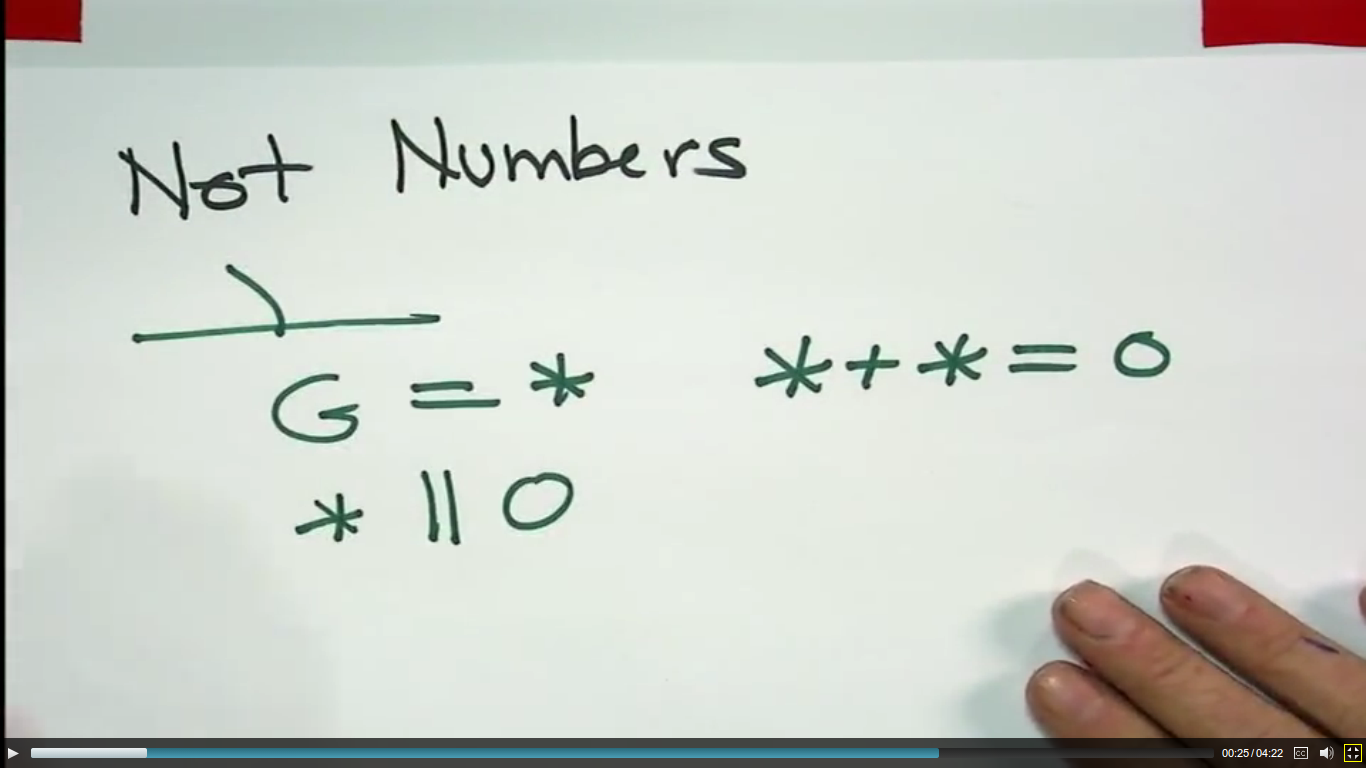 Not Numbers
G = *
* + * = 0
* || 0
00:25/04:22
CC